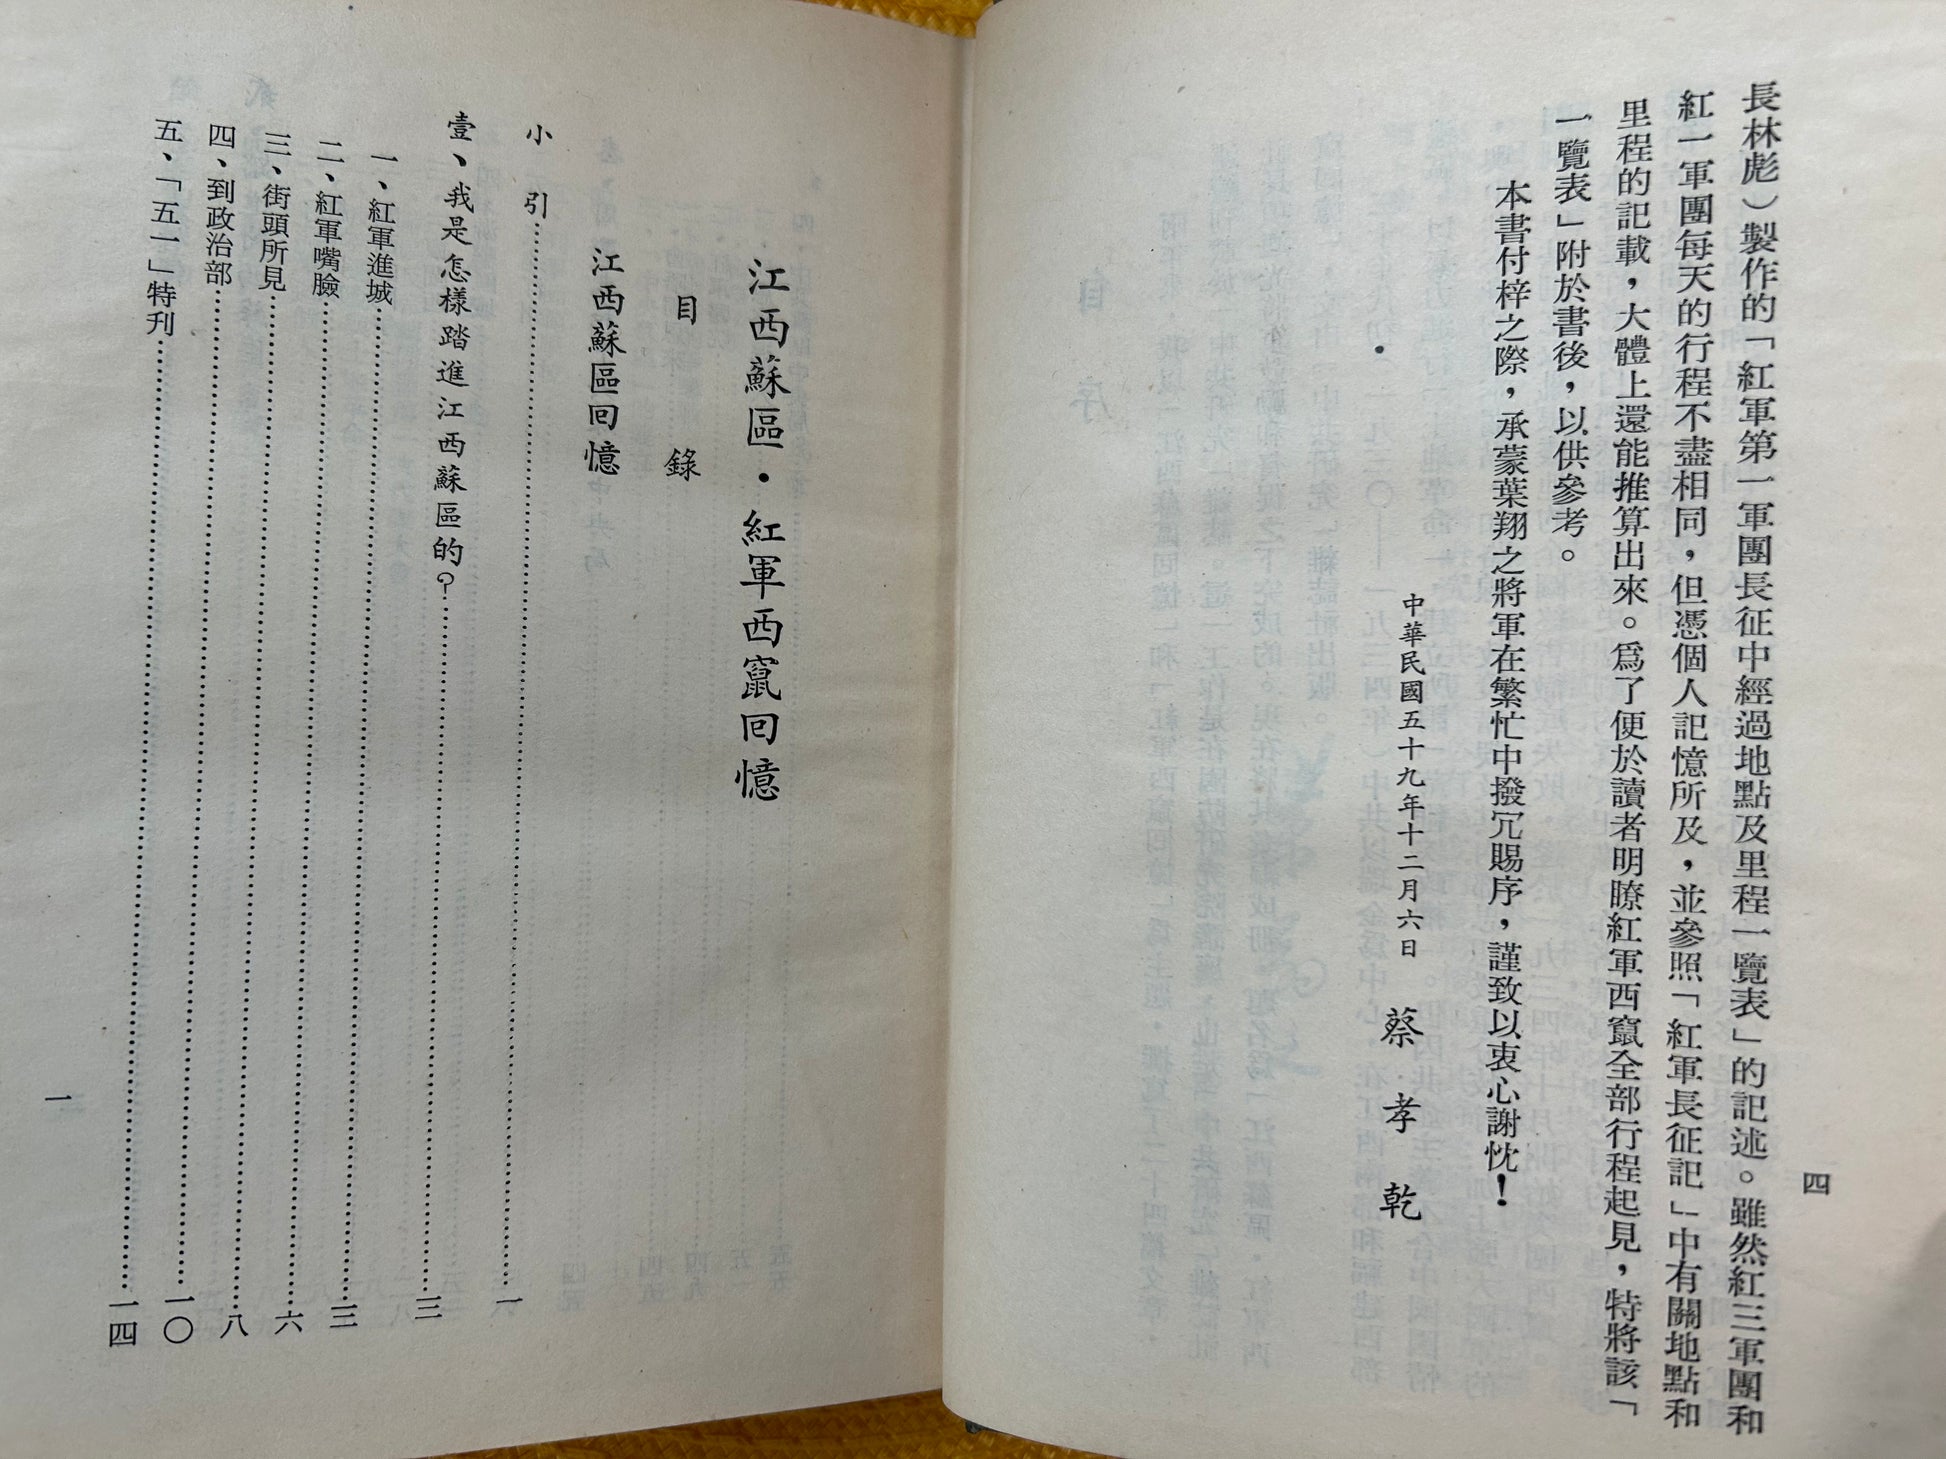 四
長林彪）製作的「紅軍第一軍團長征中經過地點及里程一覽表」的記述。雖然紅三軍團和
紅一軍團每天的行程不盡相同，但憑個人記憶所及，並參照「紅軍長征記」中有關地點和
里程的記載，大體上還能推算出來。爲了便於讀者明瞭紅軍西竄全部行程起見，特將該「
一覽表」附於書後，以供參考。
本書付梓之際，承蒙葉翔之將軍在繁忙中撥冗賜序，謹致以衷心謝忱！
中華民國五十九年十二月六日　蔡孝乾
江西蘇區・紅軍西竄回憶
目　錄
江西蘇區回憶
小　引……一
壹、我是怎樣踏進江西蘇區的？……三
一、紅軍進城……三
二、紅軍嘴臉……六
三、街頭所見……八
四、到政治部……一〇
五、「五一」特刊……一四
一